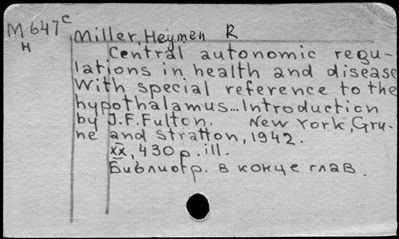 M647c Miller, Heymen R
H
Central autonomic regu-
lations in health and disease
With special reference to the
hypothalamus... Introduction
by J.F. Fulton. New York, Gru-
ne and Stratton, 1942.
XX, 430 p. ill.
Библиогр. в конце глав.